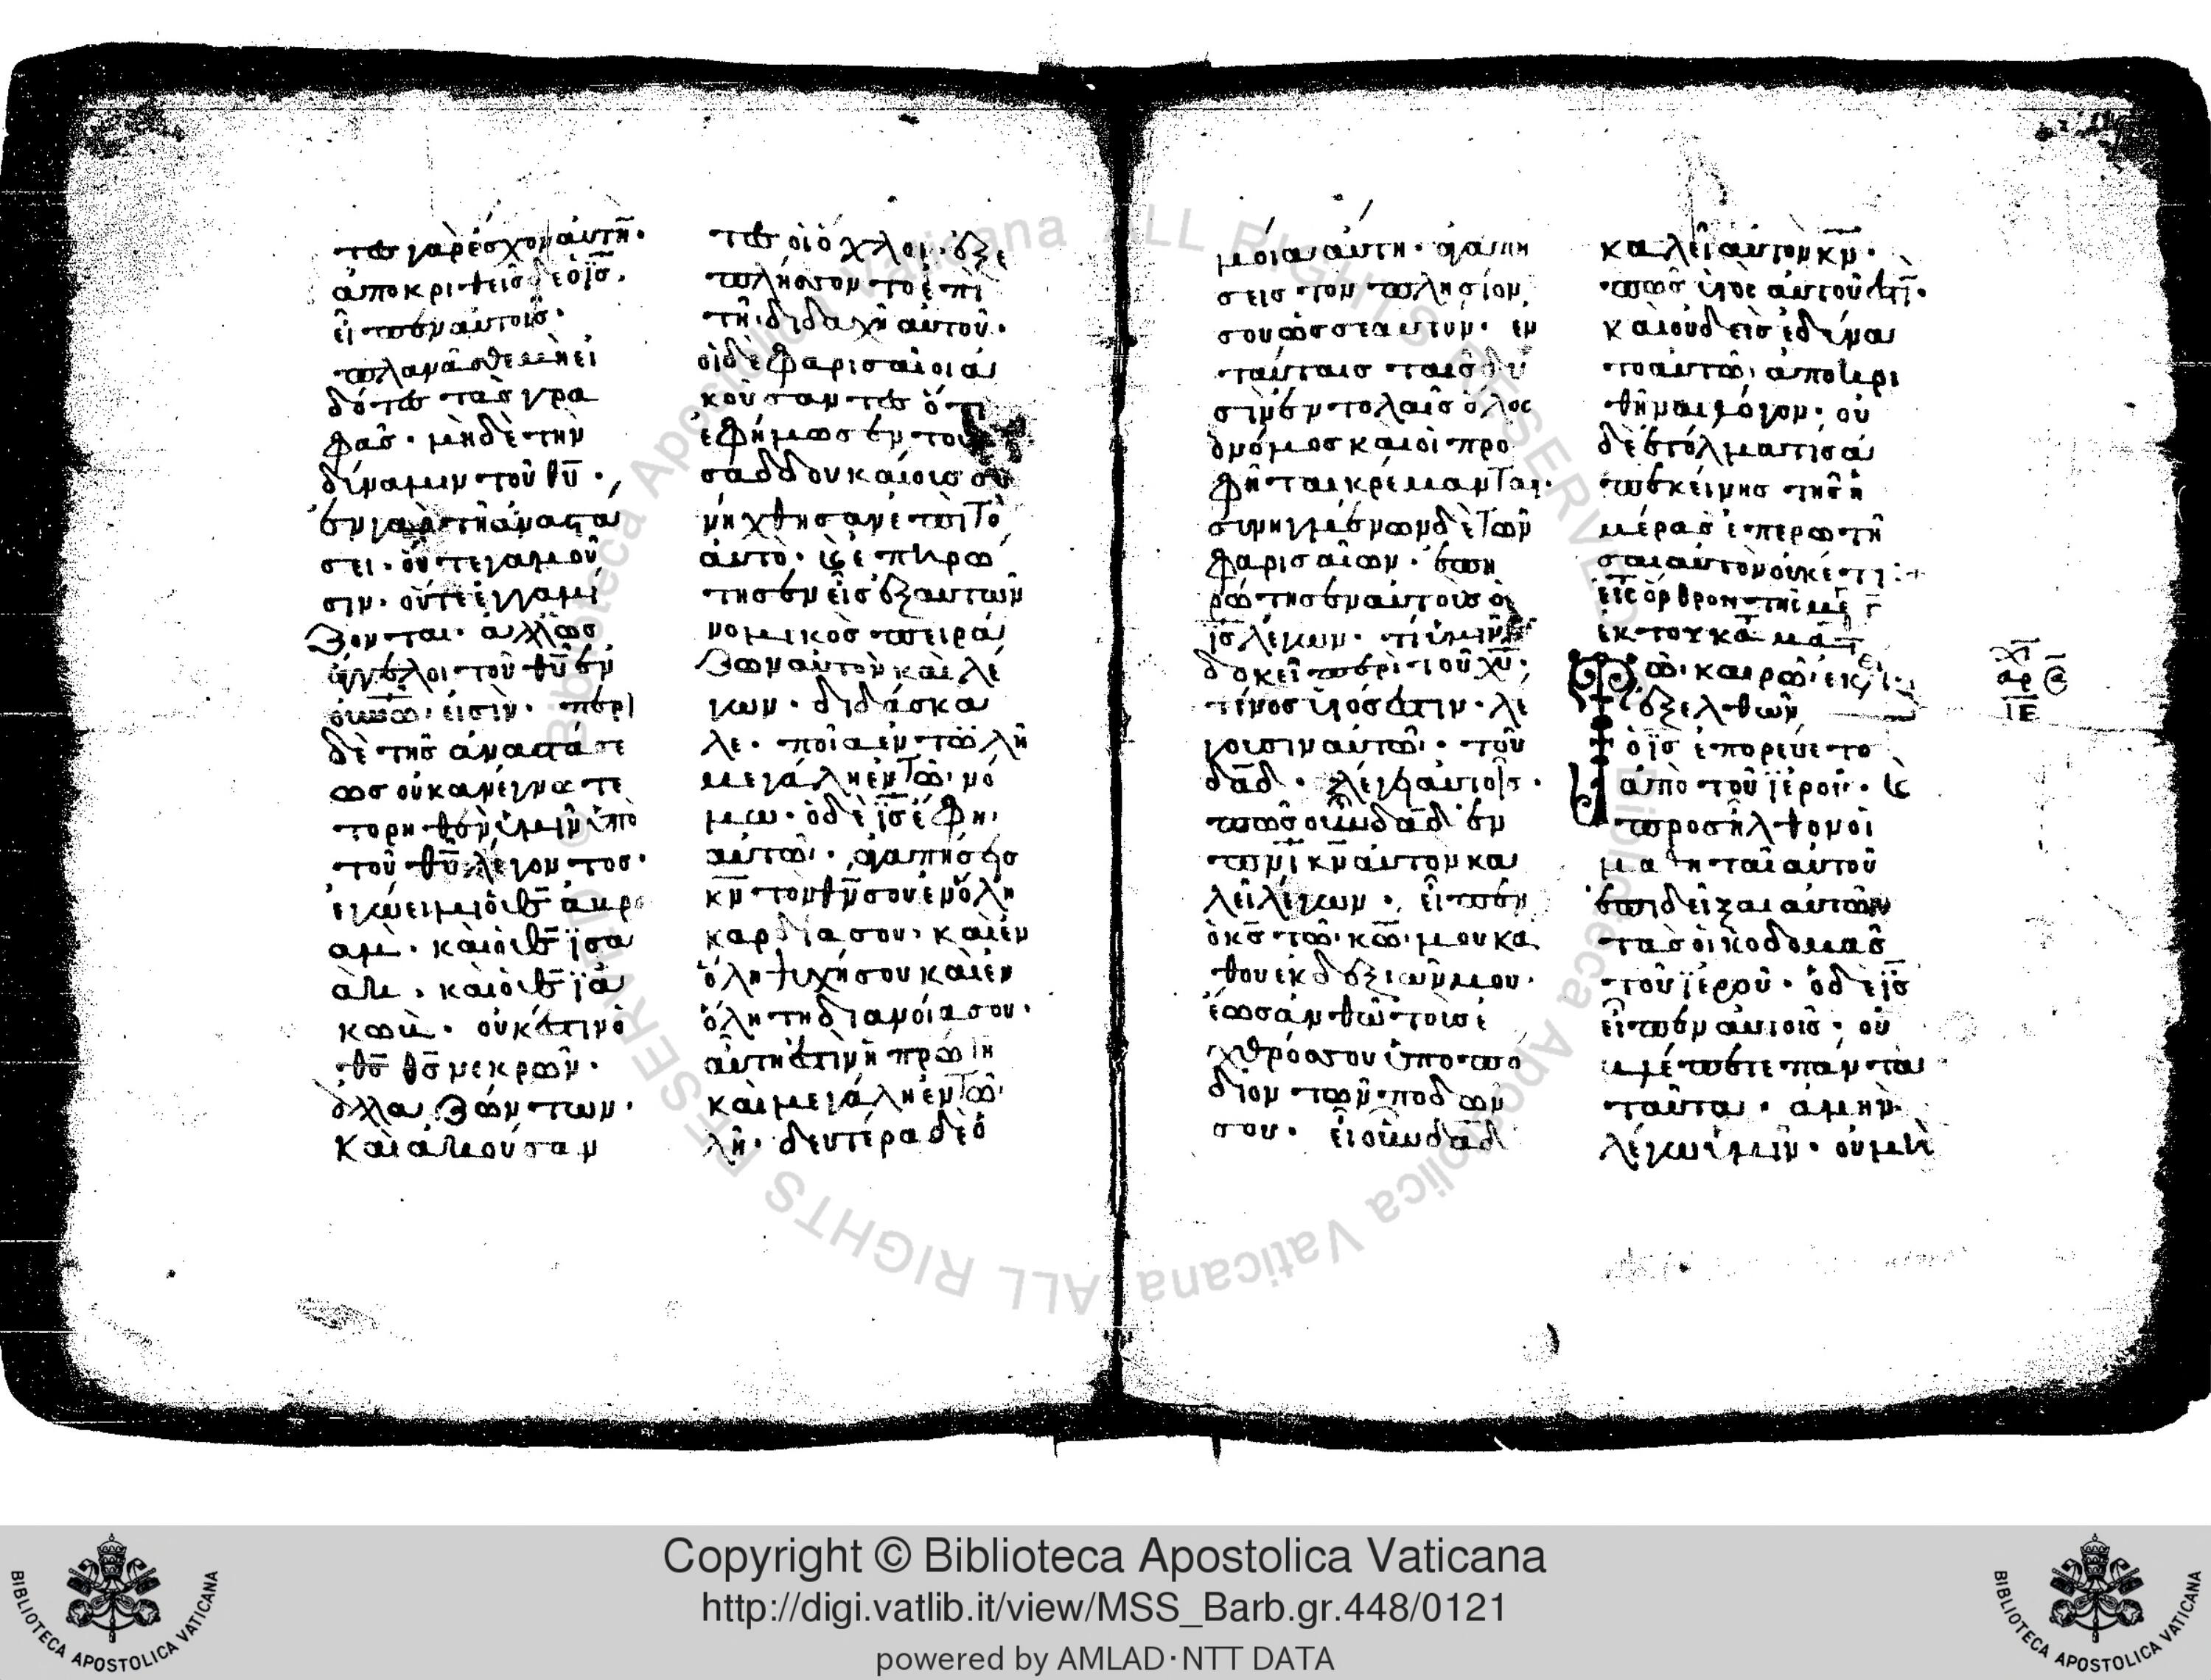 τες γὰρ ἔσχον αὐτήν·
ἀποκριθεὶς δὲ ὁ ι̅ς̅
εἶπεν αὐτοῖς·
πλανᾶσθε μὴ εἰ
δότες τὰς γρα
φάς· μηδὲ τὴν
δύναμιν τοῦ θ̅υ̅·
ἐν γὰρ τῆ ἀναστά
σει· οὔτε γαμοῦ
σιν· οὔτε ἐγγαμί
ζονται· ἀλλ' ὡς
ἄγγελοι τοῦ θ̅υ̅ ἐν
εἰσίν· περὶ
δὲ τῆς ἀναστάσε
ως οὐκ ἀνέγνωτε
τὸ ρηθὲν ὑμῖν ὑπὸ
τοῦ θ̅υ̅ λέγοντος·
ἐγώ εἰμι ὁ θ̅ς̅ ἀβρα
άμ· καὶ ὁ θ̅ς̅ ἰσα
ὰκ· καὶ ὁ θ̅ς̅ ἰα
κώβ· οὐκ ἔστιν ὁ
θ̅ς̅ θ̅ς̅ νεκρῶν·
ἀλλα ζώντων·
Καὶ ἀκούσαν
τες οἱ ὄχλοι· ἐξε
πλήσσοντο ἐπὶ
τῆ διδαχῆ αὐτοῦ·
οἱ δὲ φαρισαῖοι ἀ
κούσαντες ὅτι
ἐφήμωσεν τοὺς
σαδδουκαίους συ
νήχθησαν ἐπὶ τὸ
αὐτό· καὶ ἐπηρώ
τησεν εἷς ἐξ αὐτῶν
νομικὸς πειρά
ζων αὐτὸν καὶ λέ
γων· διδάσκα
λε· ποία ἐντολὴ
μεγάλη ἐν τῶ νό
μω· ὁ δὲ ι̅ς̅ ἔφη
αὐτῶ· ἀγαπήσεις
κ̅ν̅ τὸν θ̅ν̅ σου ἐν ὅλη
καρδία σου· καὶ ἐν
ὅλη ψυχῆ σου καὶ ἐν
ὅλη τῆ διανοία σου·
αὕτη ἐστὶν ἡ πρώτη
καὶ μεγάλη ἐντο
λή· δευτέρα δὲ ὁ
μοία αὐτῆ· ἀγαπή
σεις τὸν πλησίον
σου ὡς σεαυτόν· ἐν
ταύταις ταῖς δυ
σὶν ἐντολαῖς ὅλος
ὁ νόμος καὶ οἱ προ
φῆται κρέμανται·
συνηγμένων δὲ τῶν
φαρισαίων· ἐπη
ρώτησεν αὐτοὺς ὁ
ι̅ς̅ λέγων· τί ὑμῖν
δοκεῖ περὶ τοῦ χ̅υ̅·
τίνος υἱός ἐστιν· λέ
γουσιν αὐτῶ· τοῦ
δ̅α̅δ̅· λέγει αὐτοῖς·
πῶς οὖν δ̅α̅δ̅ ἐν
π̅ν̅ι̅ κ̅ν̅ αὐτὸν κα
λεῖ λέγων· εἶπεν
ὁ κ̅ς̅ τῶ κ̅ω̅ μου κά
θου ἐκ δεξιῶν μου·
ἕως ἂν θῶ τοὺς ἐ
χθρούς σου ὑποπό
διον τῶν ποδῶν
σου· εἰ οὖν δ̅α̅δ̅
καλεῖ αὐτὸν κ̅ν̅·
πῶς υἱὸς αὐτοῦ ἐστί·
καὶ οὐδεὶς ἐδύνα
το αὐτῶ ἀποκρι
θῆναι λόγον· οὐ
δὲ ἐτόλμα τις ἀ
π' ἐκείνης τῆς ἡ
μέρας ἐπερωτῆ
σαι αὐτὸν οὐκέτι:+
εἰς ὄρθρον τῆ με γ
ἐκ τοῦ κα μα
Τῶ καιρῶ ἐκεί
ἐξελθὼν
ὁ ι̅ς̅ ἐπορεύετο
ἀπὸ τοῦ ἱεροῦ· καὶ
προσῆλθον οἱ
μαθηταὶ αὐτοῦ
ἐπιδεῖξαι αὐτῶ
τὰς οἰκοδομὰς
τοῦ ἱεροῦ· ὁ δὲ ι̅ς̅
εἶπεν αὐτοῖς· οὐ
βλέπετε πάντα
ταῦτα· ἀμὴν
λέγω ὑμῖν· οὐ μὴ
Copyright © Biblioteca Apostolica Vaticana
http://digi.vatlib.it/view/MSS_Barb.gr.448/0121
powered by AMLAD·NTT DATA
BIBLIOTECA APOSTOLICA VATICANA
BIBLIOTECA APOSTOLICA VATICANA